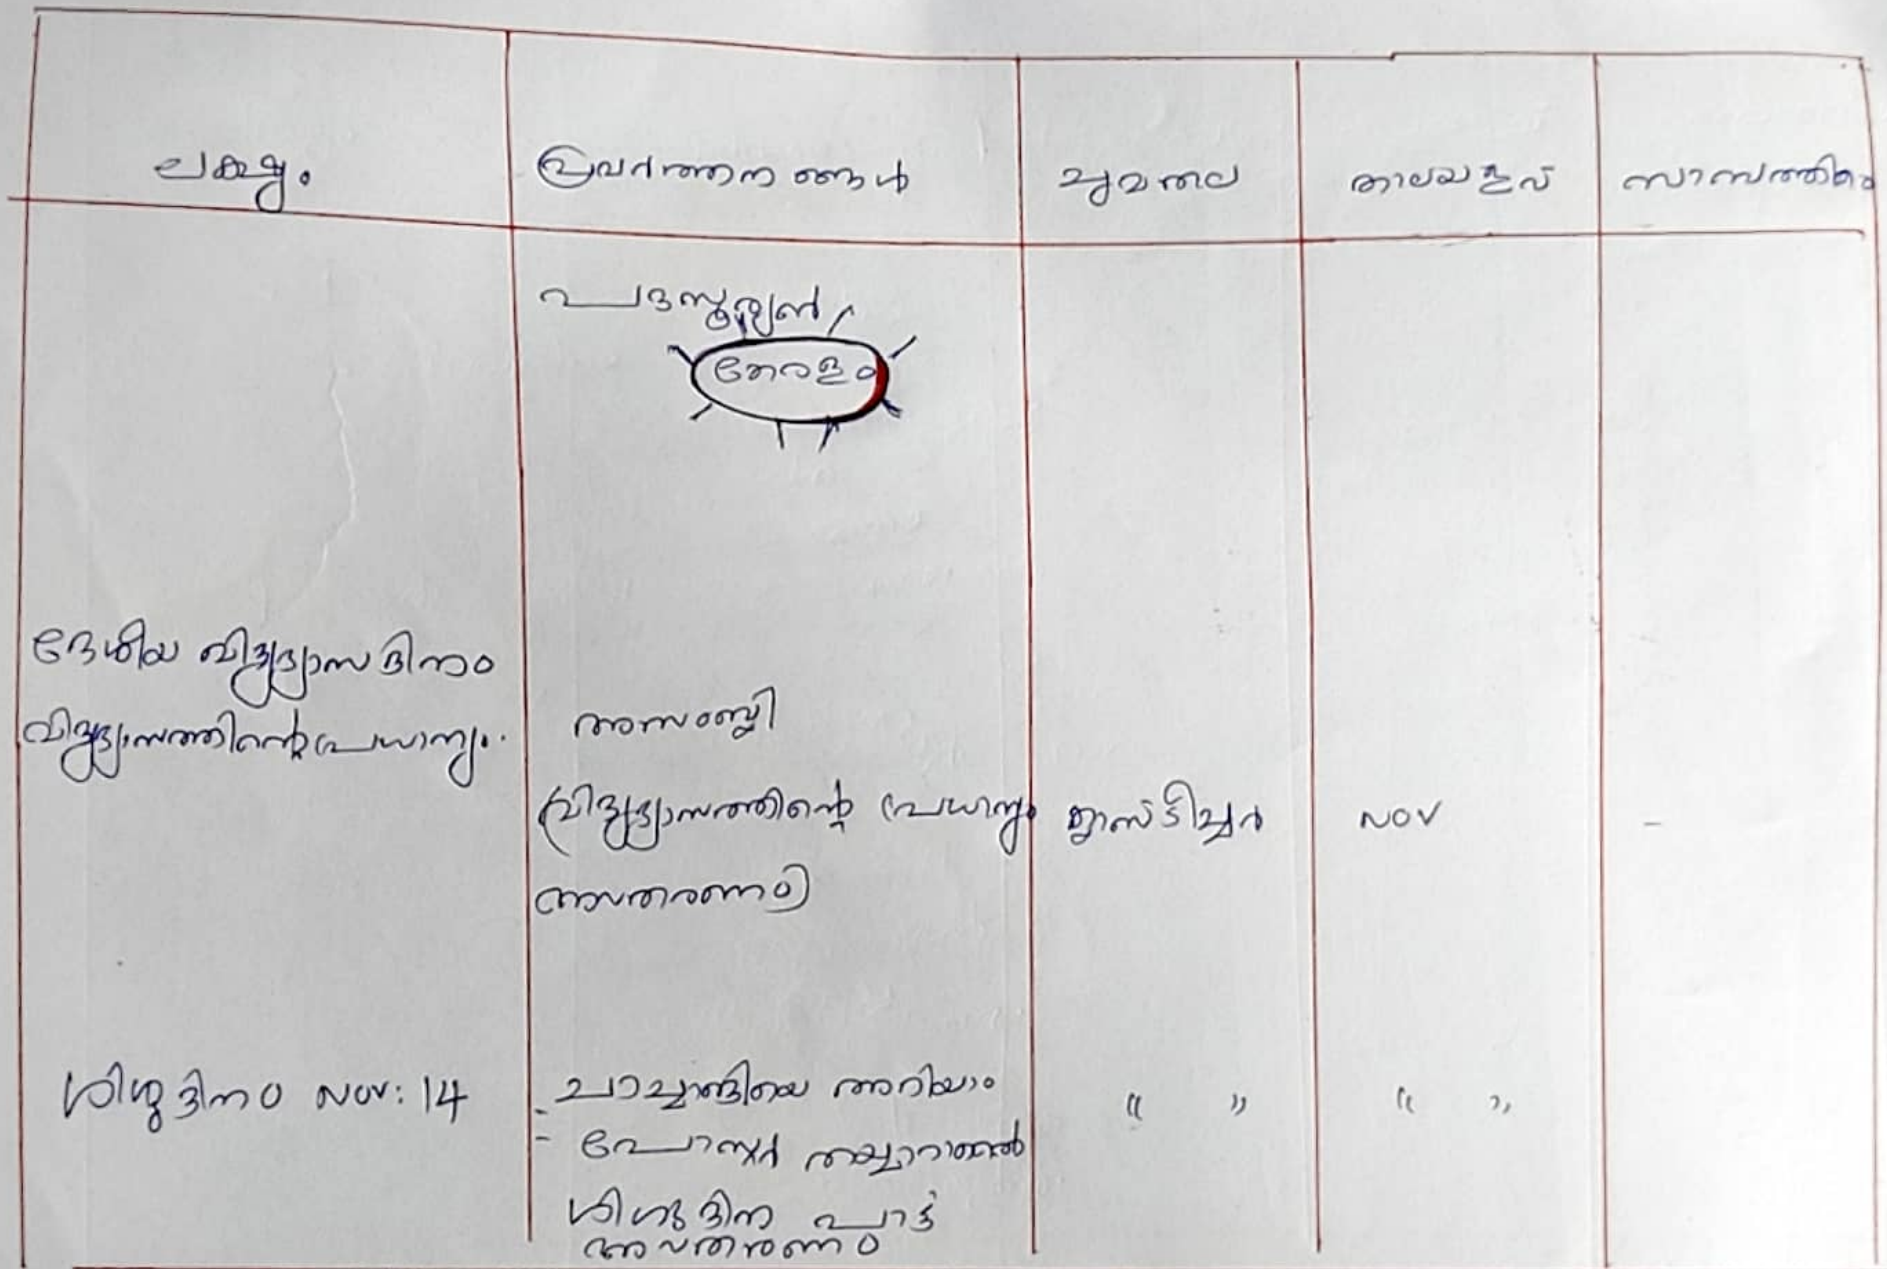 ലക്ഷ്യം പ്രവർത്തനങ്ങൾ ചുമതല കാലയളവ് സാമ്പത്തികം
പദസൂര്യൻ
കേരളം
ദേശീയ വിദ്യഭ്യാസ ദിനം
വിദ്യഭ്യാസത്തിന്റെ പ്രധാന്യം.
അസംബ്ലി
(വിദ്യഭ്യാസത്തിന്റെ പ്രധാന്യം ക്ലാസ് ടീച്ചർ NOV -
അവതരണം)
ശിശുദിനം NOV: 14 - ചാച്ചാജിയെ അറിയാം " " " "
- പോസ്റ്റർ തയ്യാറാക്കൽ
ശിശുദിന പാട്ട്
അവതരണം